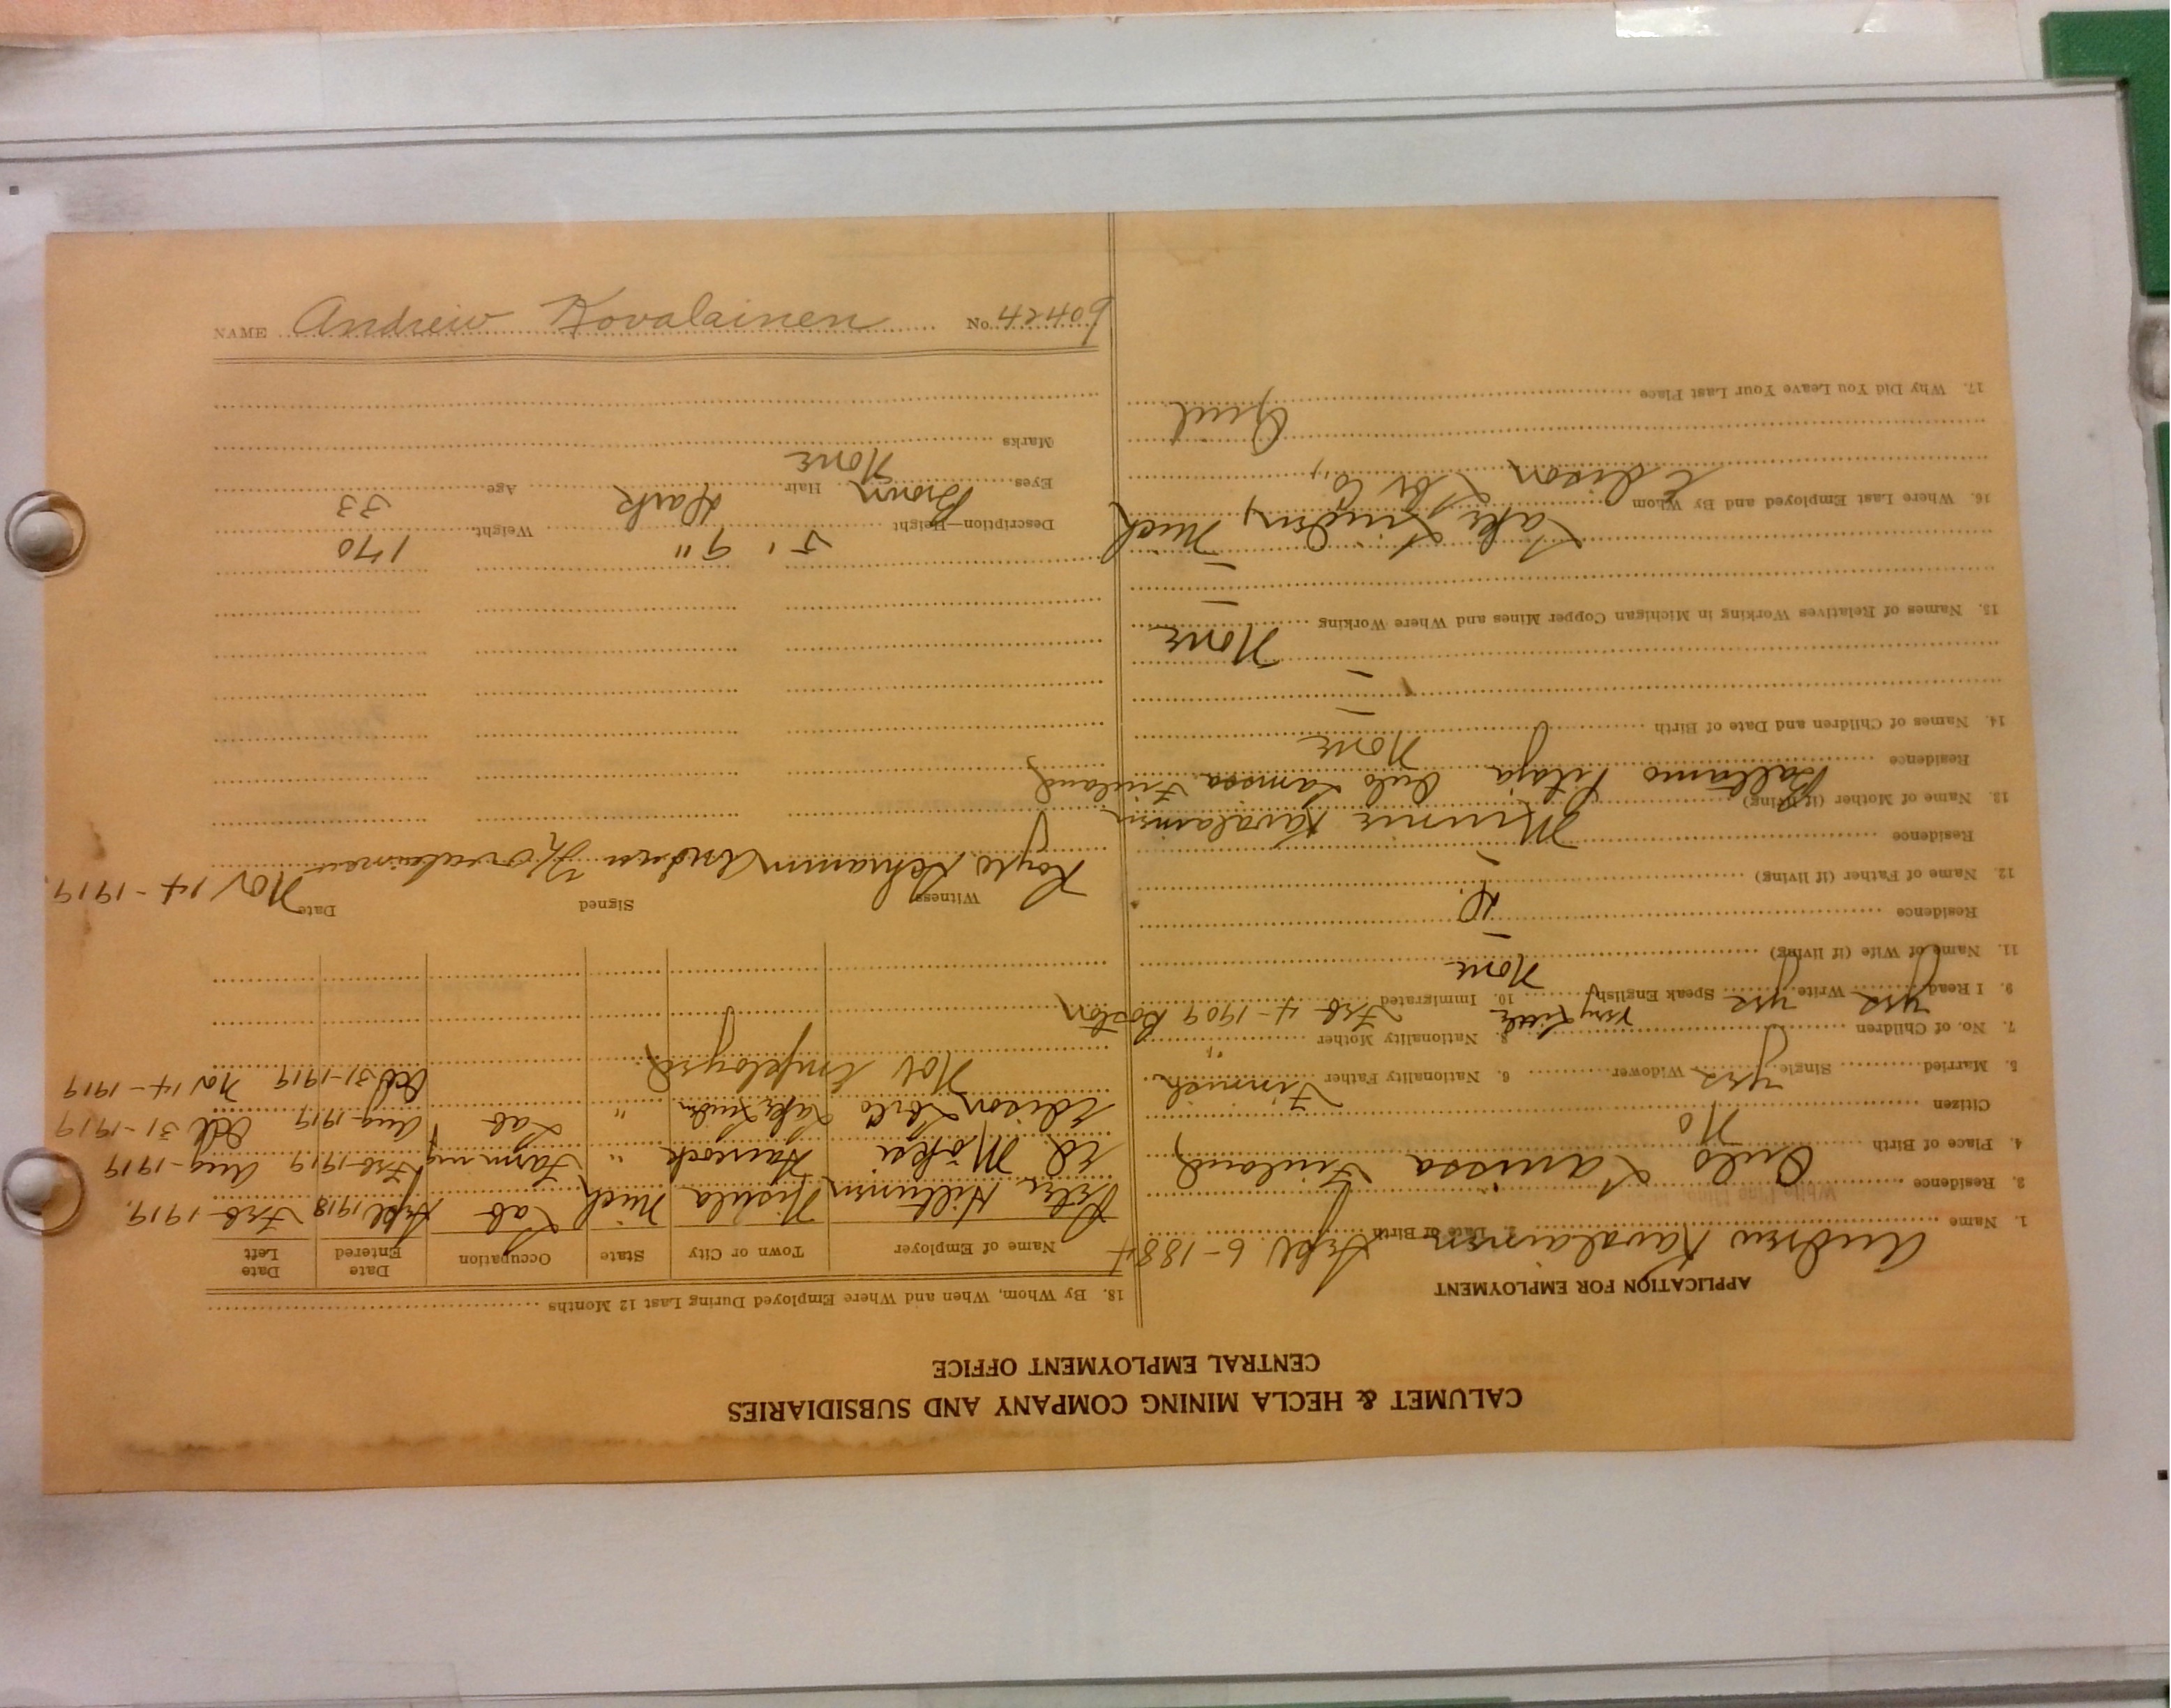 CALUMET & HECLA MINING COMPANY AND SUBSIDIARIES
CENTRAL EMPLOYMENT OFFICE
APPLICATION FOR EMPLOYMENT
1. Name Andrew Kavalainen 2. Date of Birth Apl. 6-1884
2. Residence
4. Place of Birth Oulo Lanissa Finland,
Citizen No
5. Married Single yes Widower 6. Nationality Father Finnish
7. No. of Children 8. Nationality Mother "
9. I Read yes Write yes Speak English very little 10. Immigrated Feb 4-1909 Boston
11. Name of Wife (if living) None
Residence –
12. Name of Father (if living) D.
Residence –
13. Name of Mother (if living) Minnie Kavalainen
Residence Pitaja Oulo Lanissa Finland,
14. Names of Children and Date of Birth None
–
–
15. Names of Relatives Working in Michigan Copper Mines and Where Working None
–
–
16. Where Last Employed and By Whom Lake Linden, Mich
Edison Co.,
17. Why Did You Leave Your Last Place Quit
18. By Whom, When and Where Employed During Last 12 Months
Name of Employer Town or City State Occupation Date Entered Date Left
Peter Hiltunen Nisula Mich Lab Apl 1918 Feb-1919.
Ed Mäki Hancock " Farming Feb-1919 Aug-1919
Edison Lake Linden " Lab Aug-1919 Oct 31-1919
Not Employed Oct 31-1919 Nov 14-1919
Witness Signed Andrew Kovalainen Date Nov 14-1919.
Description—Height 5' 9" Weight 170
Eyes Brown Hair Dark Age 33
Marks None
NAME Andrew Kovalainen No. 42409